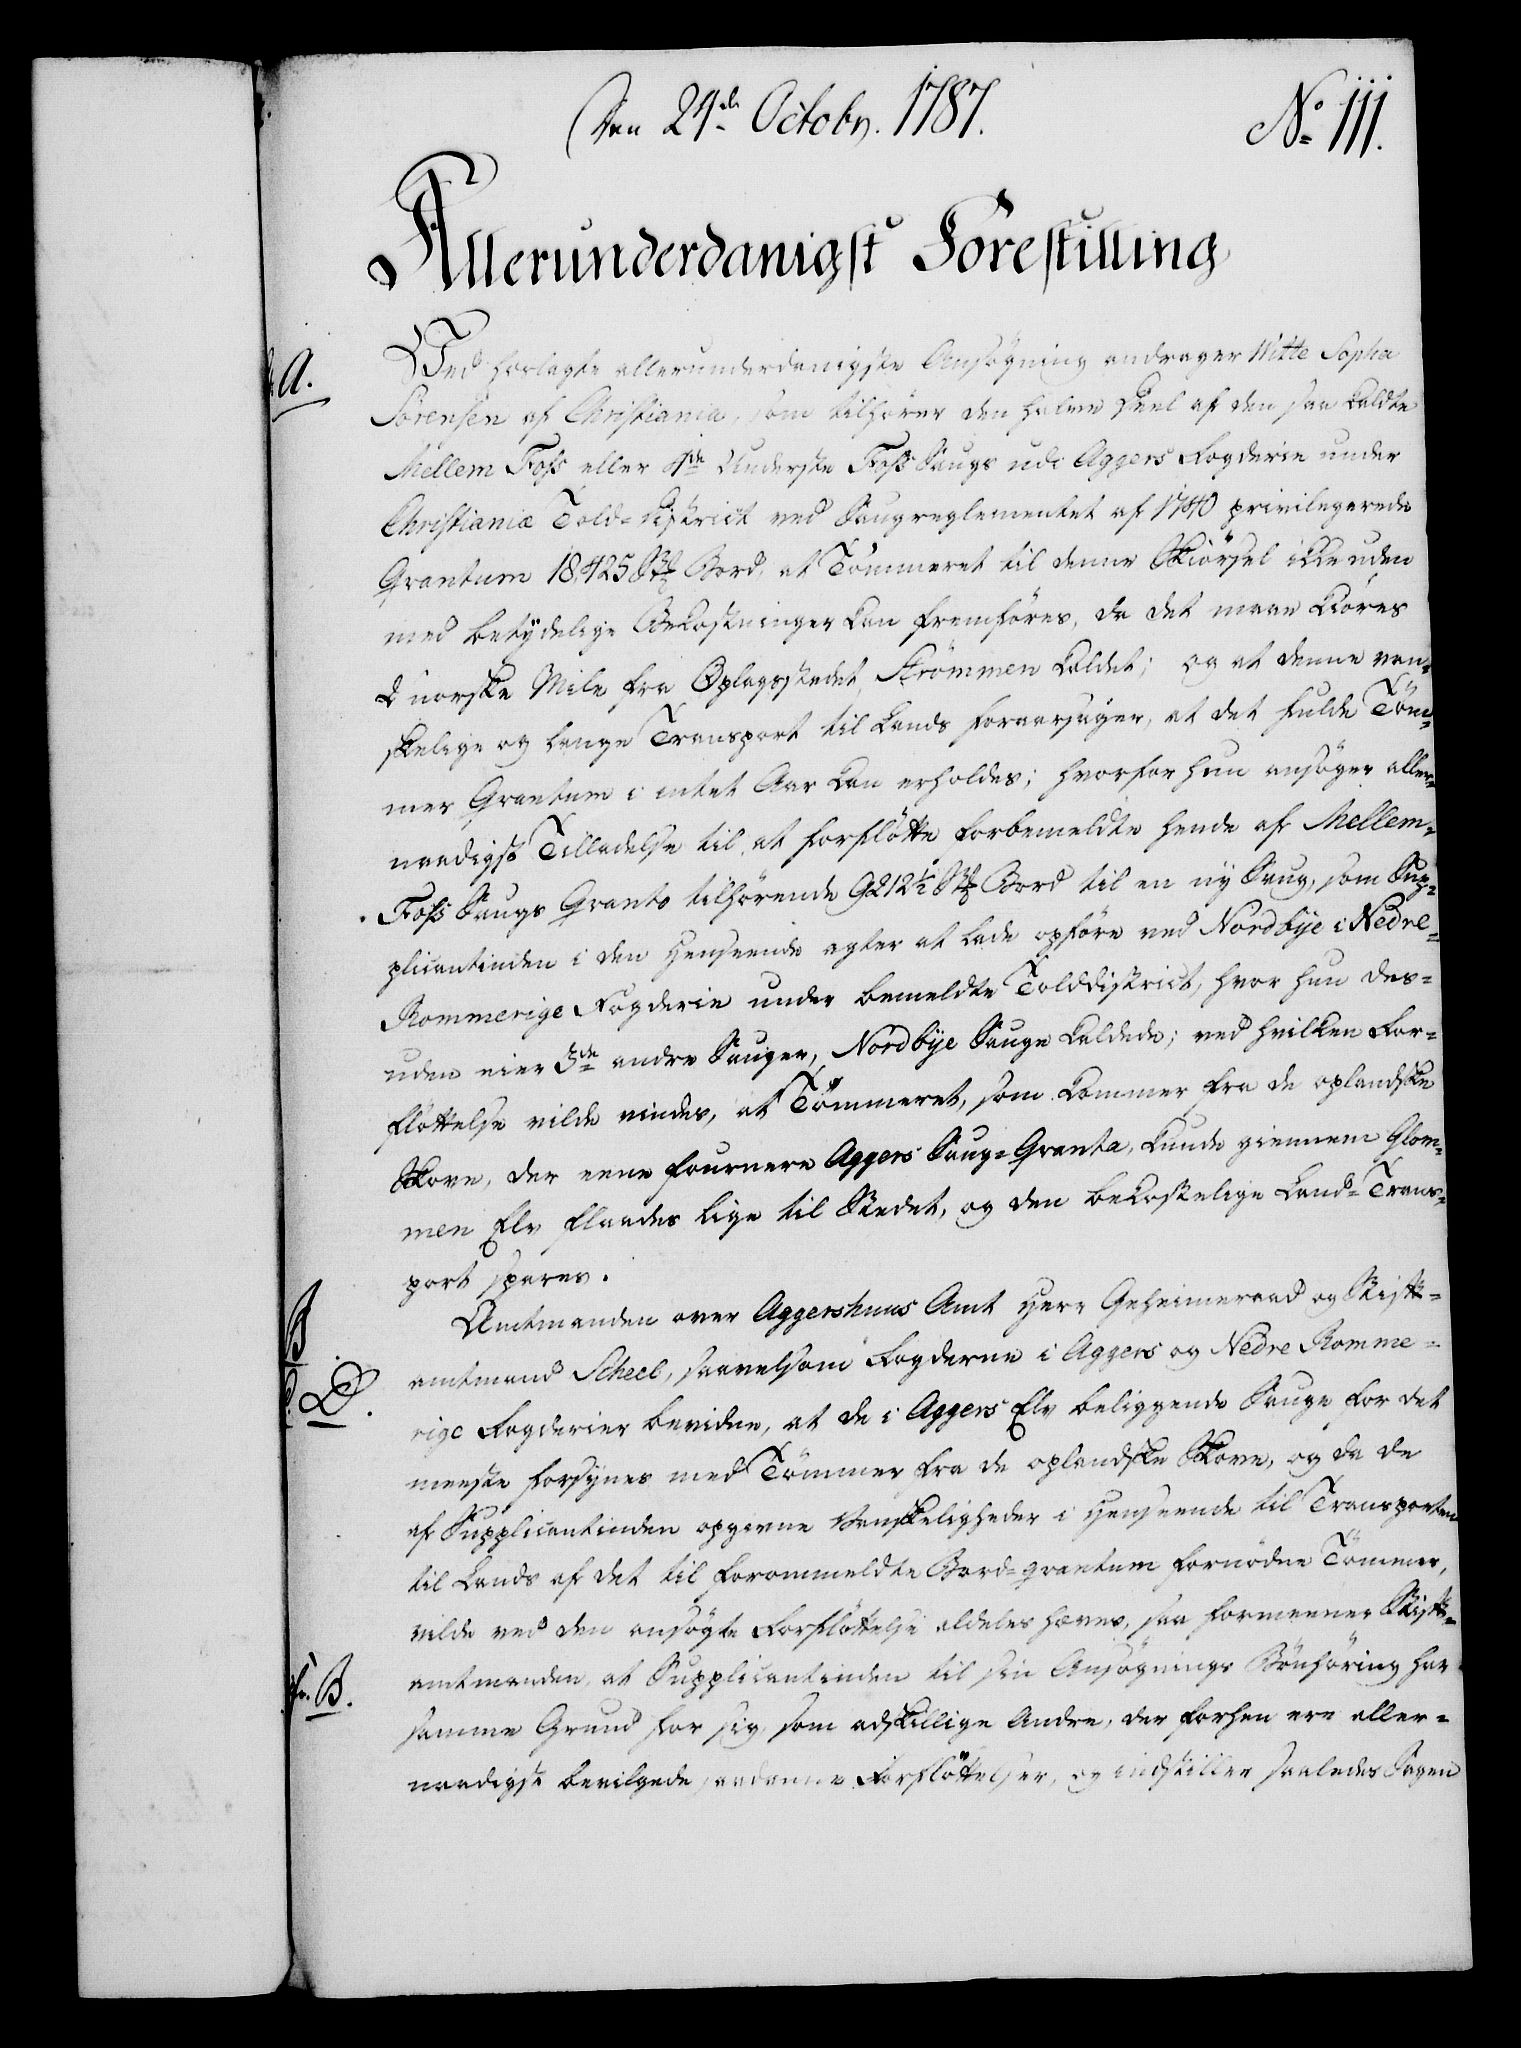 Den 24de Octobr. 1787.
No 111.
Allerunderdanigst Forestilling
A.
Ved hoslagte allerunderdanigste Ansøgning andrager Witte Sopha
Sørensen af Christiania, som tilhører den halve Deel af den saa kaldte
Mellem Foss eller 4de Underste Foss Saugs udi Aggers Fogderie under
Christianiæ Told-District ved Saugreglementet af 1740 privilegerede
Qvantum 18,425 Stk Bord, at Tømmeret til denne Skiørsel ikke uden
med betydelige Bekostninger kan fremføres, da det maae kiøres
2 norske Mile fra Oplagsstedet, Strømmen kaldet; og at denne van-
skelige og lange Transport til Lands foraarsager, at det fulde Tøm-
mer Qvantum i intet Aar kan erholdes; hvorfor hun ansøger aller-
naadigst Tilladelse til at forfløtte forbemeldte hende af Mellem-
Foss Saugs Qvanto tilhørende 9212½ Stk Bord til en ny Saug, som Sup-
plicantinden i den Henseende agter at lade opføre ved Nordbye i Nedre-
Rommerige Fogderie under bemeldte Tolddistrict, hvor hun des-
uden eier 3de andre Sauger, Nordbye Sauge kaldede; ved hvilken For-
fløttelse vilde vindes, at Tømmeret, som kommer fra de oplandske
Skove, der eene fournere Aggers Saug-Qvanta, kunde giennem Glom-
men Elv flaades lige til Stedet, og den bekostelige Land-Trans-
port spares.
B
D.
Amtmanden over Aggershuus Amt Herr Geheimeraad og Stift-
amtmand Scheel, saavelsom Fogderne i Aggers og Nedre Romme-
rige Fogderier bevidne, at de i Aggers Elv beliggende Sauge for det
meeste forsynes med Tømmer fra de oplandske Skove, og da de
af Supplicantinden opgivne Vanskeligheder i Henseende til Transporten
til Lands af det til forommeldte Bord-qvantum fornødne Tømmer,
vilde ved den ansøgte Forfløttelse aldeles hæves, saa formeener Stift-
B.
amtmanden, at Supplicantinden til sin Ansøgnings Bønhøring har
samme Grund for sig, som adskillige Andre, der forhen ere aller-
naadigst bevilgede saadanne Forfløttelser, og indstiller saaledes Sagen